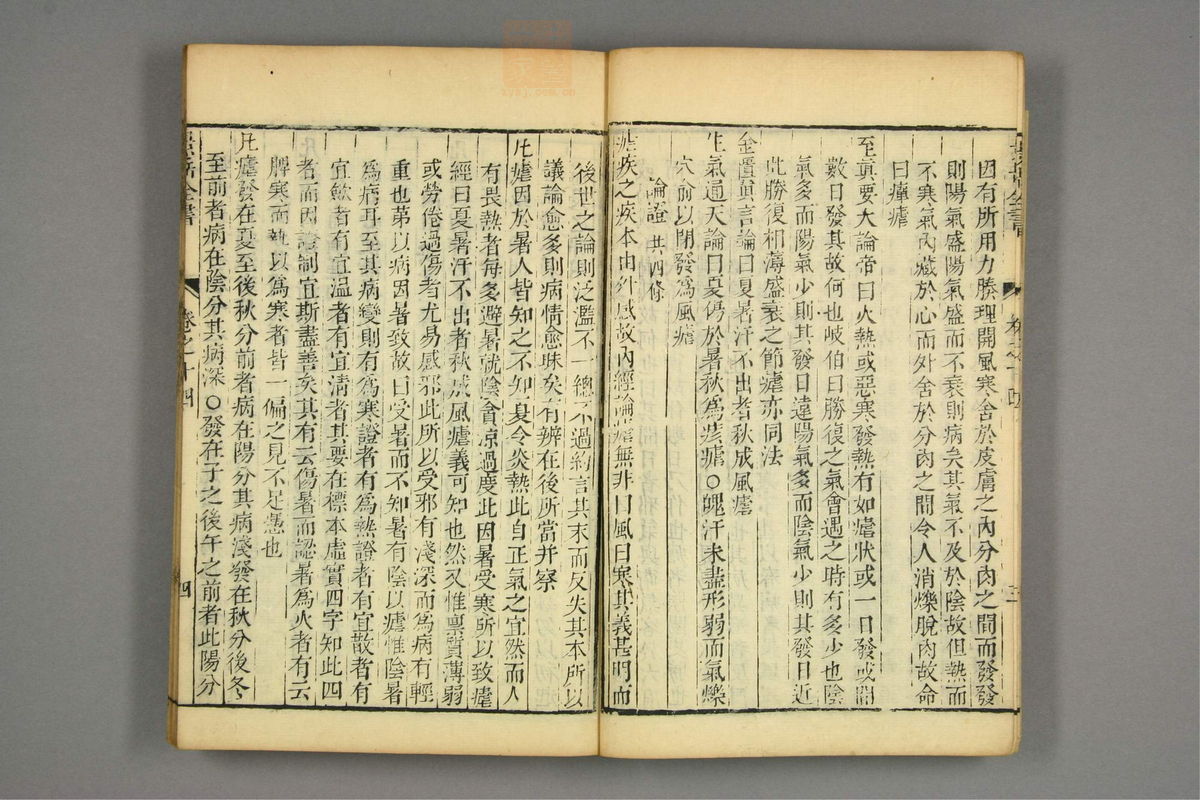 因有所用力腠理開風寒舍於皮膚之內分肉之間而發發
則陽氣盛陽氣盛而不衰則病矣其氣不及於陰故但熱而
不寒氣內藏於心而外舍於分肉之間令人消爍脫肉故命
曰癉瘧
至真要大論帝曰火熱或惡寒發熱有如瘧狀或一日發或間
數日發其故何也岐伯曰勝復之氣會遇之時有多少也陰
氣多而陽氣少則其發日遠陽氣多而陰氣少則其發日近
此勝復相薄盛衰之節瘧亦同法
金匱真言論曰夏暑汗不出者秋成風瘧
生氣通天論曰夏傷於暑秋為痎瘧○魄汗未盡形弱而氣爍
穴俞以閉發為風瘧
論證 共四條
瘧疾之疾本由外感故內經論瘧無非曰風曰寒其義甚明而
後世之論則泛濫不一總不過約言其末而反失其本所以
議論愈多則病情愈昧矣有辨在後所當并察
凡瘧因於暑人皆知之不知夏令炎熱此自正氣之宜然而人
有畏熱者每多避暑就陰貪涼過度此因暑受寒所以致瘧
經曰夏暑汗不出者秋成風瘧義可知也然又惟稟質薄弱
或勞倦過傷者尤易感邪此所以受邪有淺深而為病有輕
重也第以病因暑致故曰受暑而不知暑有陰以瘧惟陰暑
為病耳至其病變則有為寒證者有為熱證者有宜散者有
宜斂者有宜溫者有宜清者其要在標本虛實四字知此四
者而因證制宜斯盡善矣其有云傷暑而認暑為火者有云
脾寒而執以為寒者皆一偏之見不足慿也
凡瘧發在夏至後秋分前者病在陽分其病淺發在秋分後冬
至前者病在陰分其病深○發在子之後午之前者此陽分
景岳全書
卷之十四
四